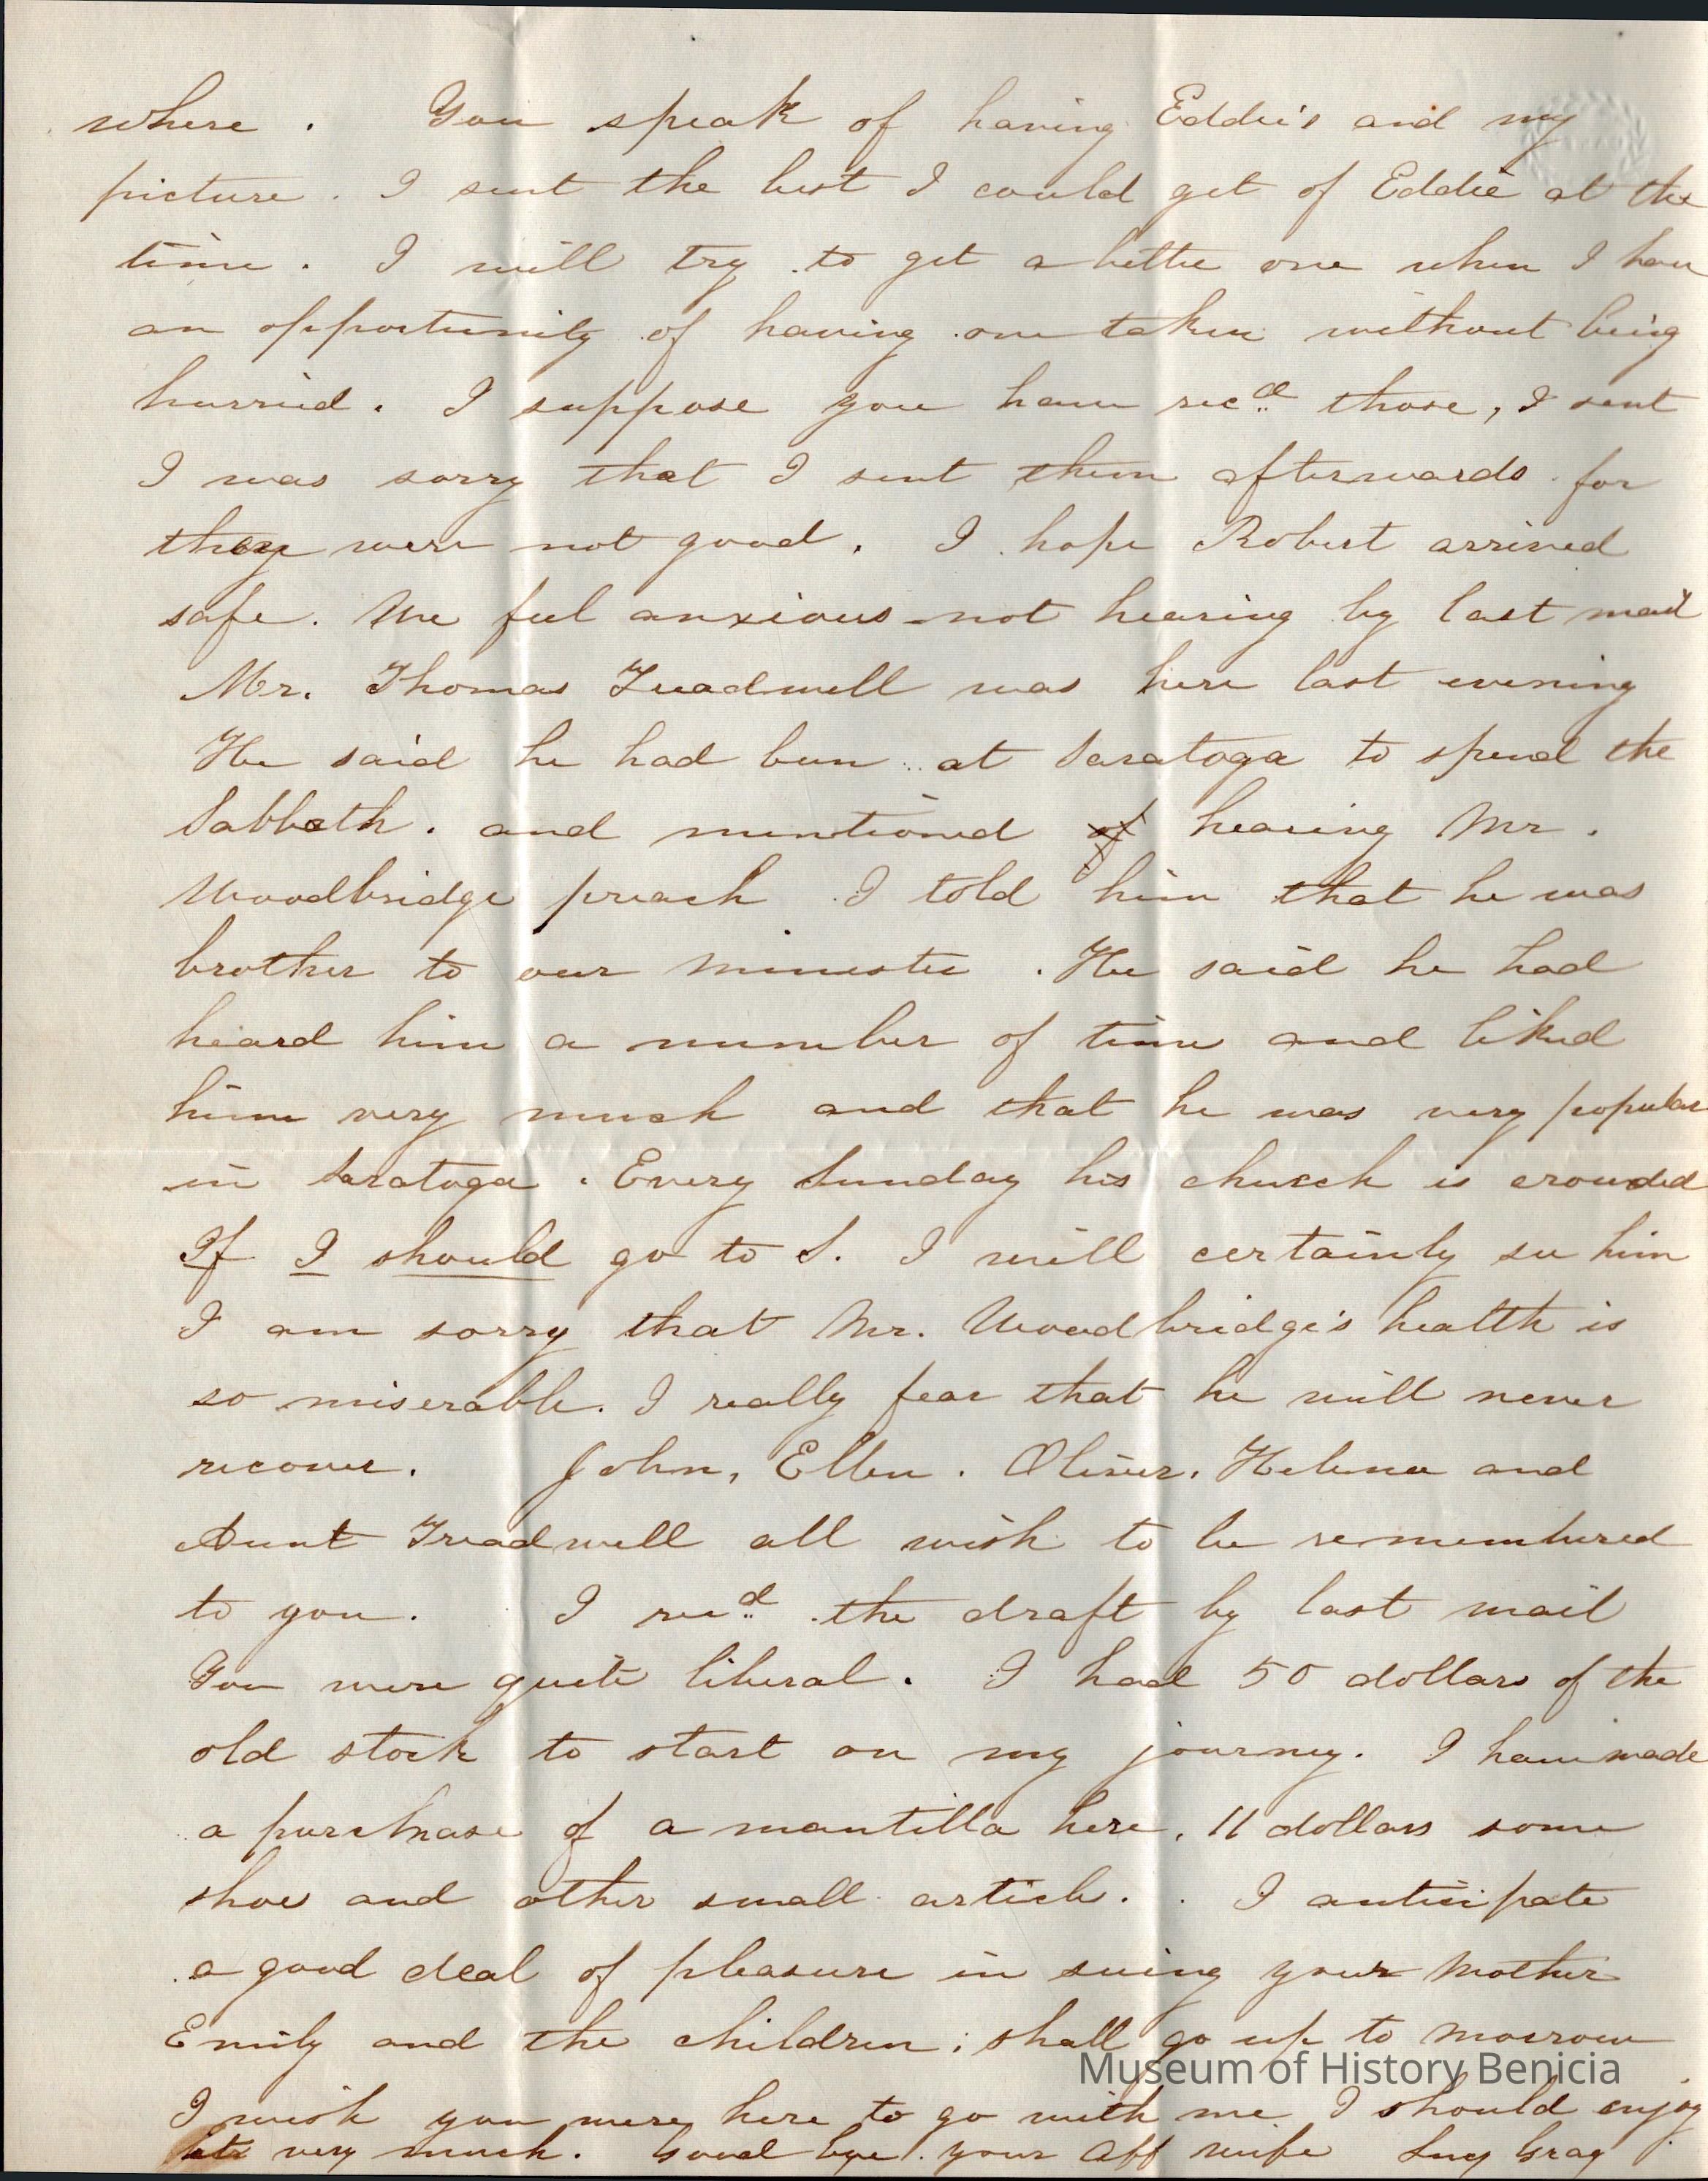 where . You speak of having Eddie's and my
picture . I sent the best I could get of Eddie at the
time . I will try to get a bettie one when I have
an opportunity of having one taken without being
hurried . I suppose you have recd those , I sent
I was sorry that I sent them afterwards for
they were not good . I hope Robert arrived
safe . We feel anxious not hearing by last mail
Mr. Thomas Treadwell was here last evening
He said he had been at Saratoga to spend the
Sabbath . and mentioned of hearing Mr .
Woodbridge preach I told him that he was
brother to our minister . He said he had
heard him a number of time and liked
him very much and that he was very popular
in Saratoga . Every Sunday his church is crowded
If I should go to S. I will certainly see him
I am sorry that Mr. Woodbridge's health is
so miserable . I really fear that he will never
recover . John , Ellen . Oliver . Helena and
Aunt Treadwell all wish to be remembered
to you . I recd the draft by last mail
You were quite liberal . I had 50 dollars of the
old stock to start on my journey . I have made
a purchase of a mantilla here , 11 dollars some
shoes and other small article . I anticipate
a good deal of pleasure in seeing your Mother
Emily and the children ; shall go up to morrow
Museum of History Benicia
I wish you were here to go with me I should enjoy
it very much . Good bye . your aff wife Lucy Gray